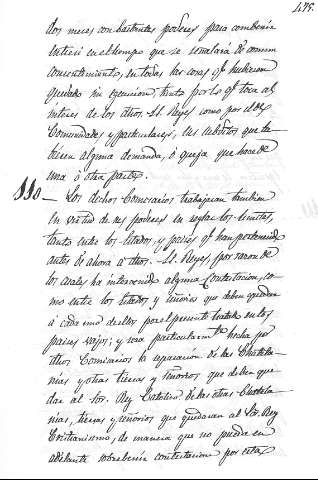 475.
dos meses con bastantes poderes para combenir
entre si en el tiempo que se señalará de comun
consentimiento, en todas las cosas q.e hubieran
quedado sin egecucion, tanto por lo q.e toca al
interes de los dhos. SS. Reyes como por el de
Comunidades y particulares, sus subditos que tu-
bieren alguna demanda, ó queja que hacer de
una ú otra parte.
110 — Los dichos Comisarios trabajaran tambien
en virtud de sus poderes en reglar los limites,
tanto entre los Estados y paises q.e han pertenecido
antes de ahora á dhos. SS. Reyes, por razon de
los cuales há intervenido alguna Contestacion, co-
mo entre los Estados y Señorios que deben quedar
á cada uno de ellos por el presente tratado en los
paises vajos; y sera particularm.te hecha por
dhos Comisarios la separacion de las Chatela-
nias y otras tierras y Señorios que deben que-
dar al Sor. Rey Catolico de las otras Chatela-
nias, tierras y señorios que quedaran al Sr. Rey
Cristianisimo, de manera que no pueda en
adelante sobrebenir contestacion por esta